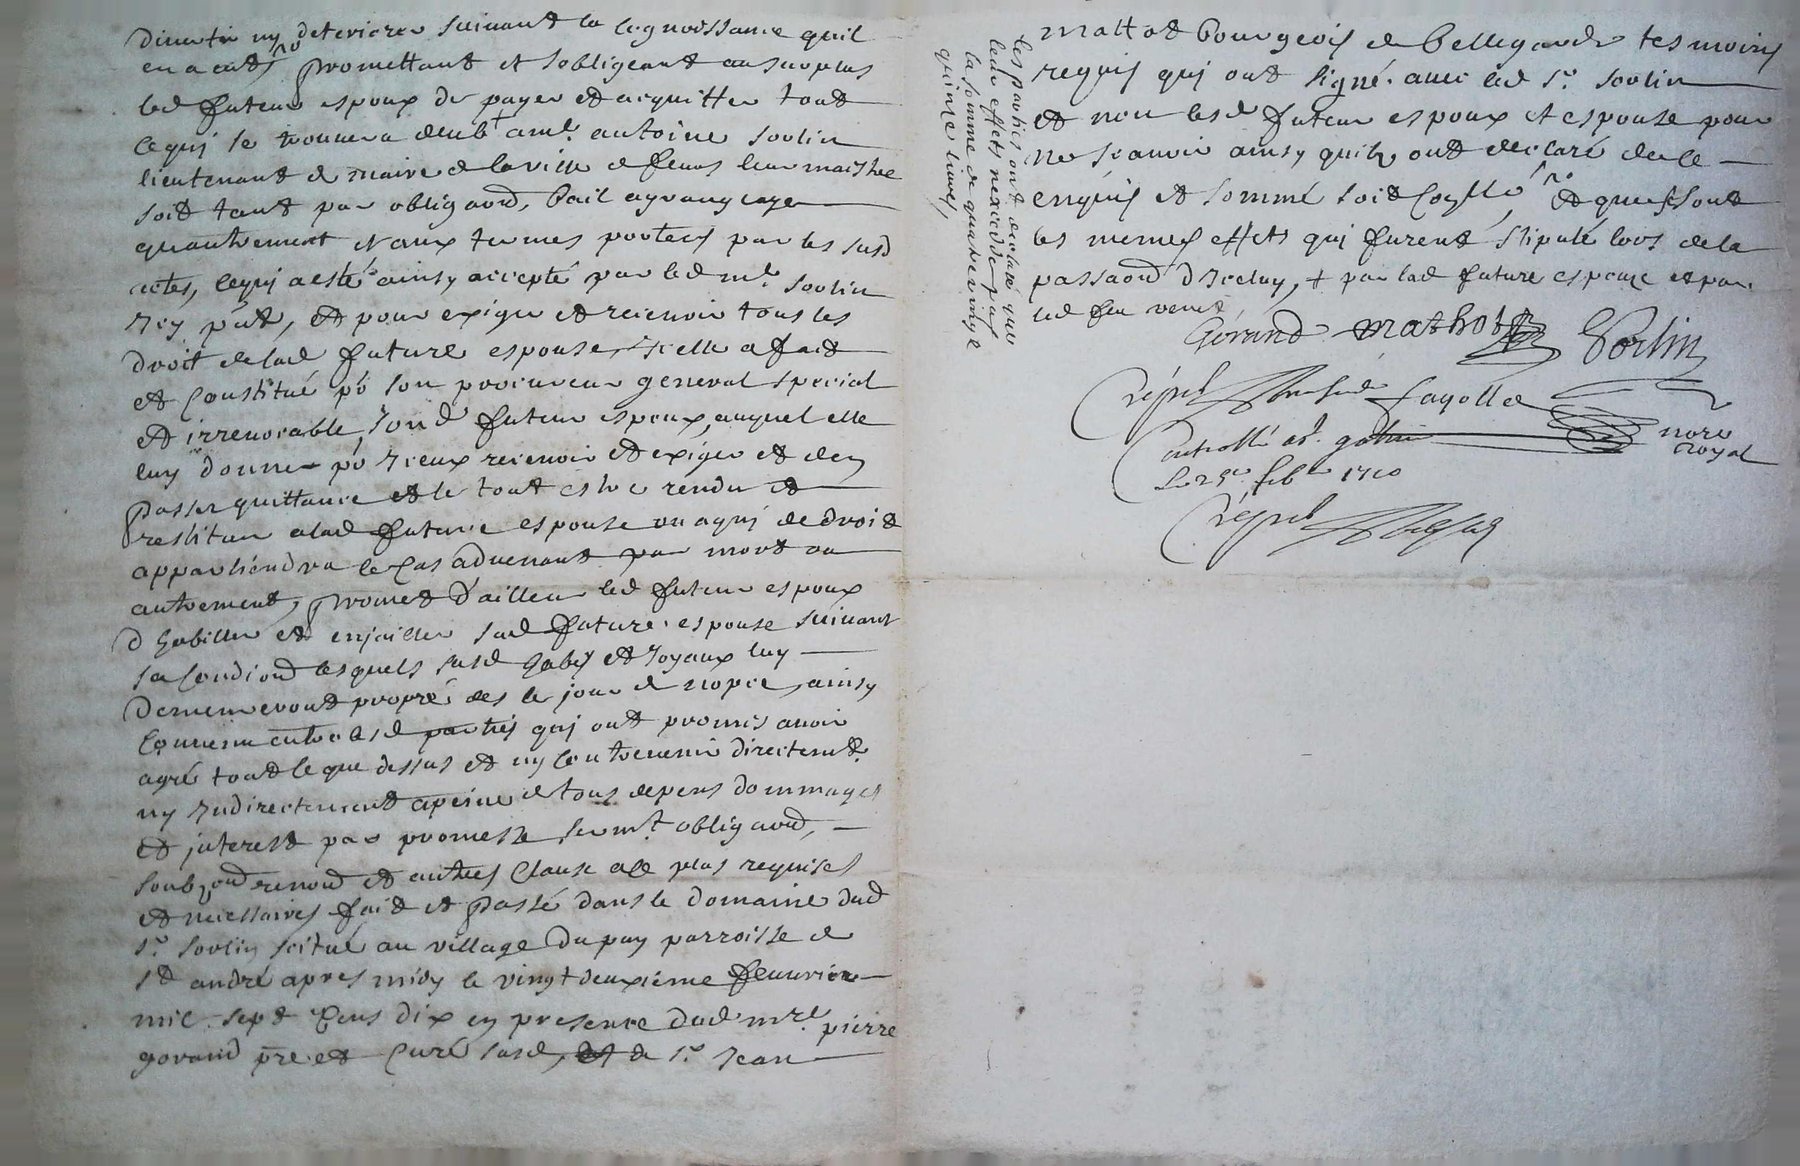 ny deteriorer suivant la cognoissance quil
en a promettant et sobligeant au surplus
led futeur espoux de payer et acquitter tout
ce qui se trouvera deub a mr antoine sorlin
lieutenant de maire de la ville de feurs leur maistre
soit tant par obligaond, bail agrangeage
quautrement et aux termes porteés par les susd
actes, le quj a esté ainsy accepté par led mr sorlin
Icy pñt, et pour exiger et recevoir tous les
droit de lad future espouse, Icelle a fait
et constitué põ son procureur general special
et irrevocable, sond futeur espoux, auquel elle
luy donne põ Iceux recevoir et exiger et den
passer quittance et le tout estre rendu et
restituer a lad future espouse ou a quj de droit
appartiendra le cas advenant par mort ou
autrement, promet dailleur led futeur espoux
dhabiller et enjailler sad future espouse suivant
sa condiond lesquels susd habis et Joyaux luy
demeureront propre des le jour de nopce, ainsy
convenu entre lesd parties quj ont promis avoir
agré tout le que dessus et ny contrevenir directemt
ny Indirectement a peine de tous depens dommages
et jnterest par promesse, sermt obligaond,
et autres clause a ce plus requises
et necessaires fait et passé dans le domaine dud
sr sorlin scitué au village du puy parroisse de
st andré apres midy le vingtdeuxième feuvrier
mil sept cens dix en presence dud mre pierre
gorand pre et curé susd, et de sr Jean
mattot bourgeois de bellegarde tesmoins
requis quj ont signé avec led sr sorlin
et non lesd futeur espoux et espouse pour
ne scavoir ainsy quils ont declaré de ce
enquis et sommé soit et que se sont
les memes effets qui furent stipulé lors de la
passaond dIceluy, + par lad future espouse et par
led feu
les parties ont declaré que
leds effets nexcede pas
la somme de quatrevingt
quinze livres,
Gorand mathot Sorlin
Fayolle
nore
royal
Controllé
Le 25e feb 1710